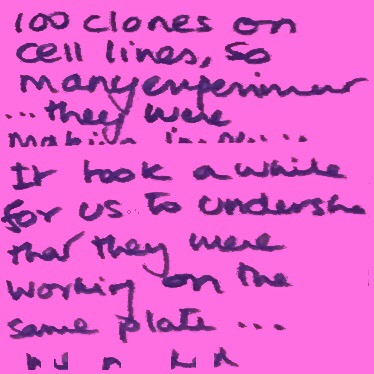 100 clones on
cell lines, So
many experimen
... they were
Making in
It took a while
for us to understa
that they were
working on the
same plate ...